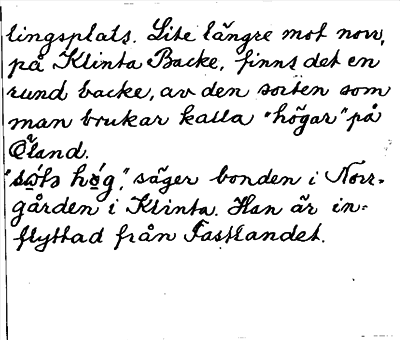 lingsplats. Lite längre mot norr,
på Klinta Backe, finns det en
rund backe, av den sorten som
man brukar kalla "högar" på
Öland.
"sóts hög," säger bonden i Norr-
gården i Klinta. Han är in-
flyttad från Fastlandet.